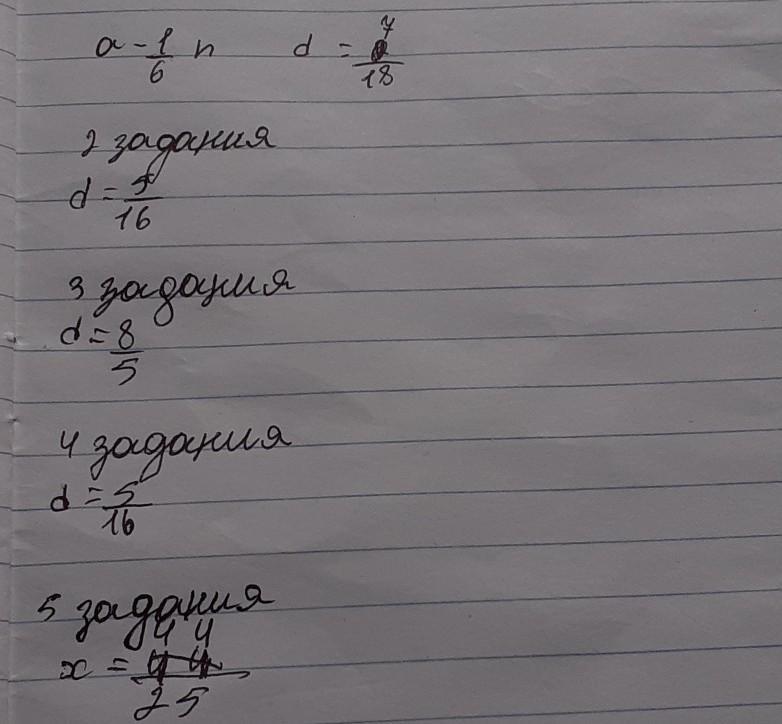 a - 1/6 n d = 7/18
2 задания
d = 5/16
3 задания
d = 8/5
4 задания
d = 5/16
5 задания
x = 44/25